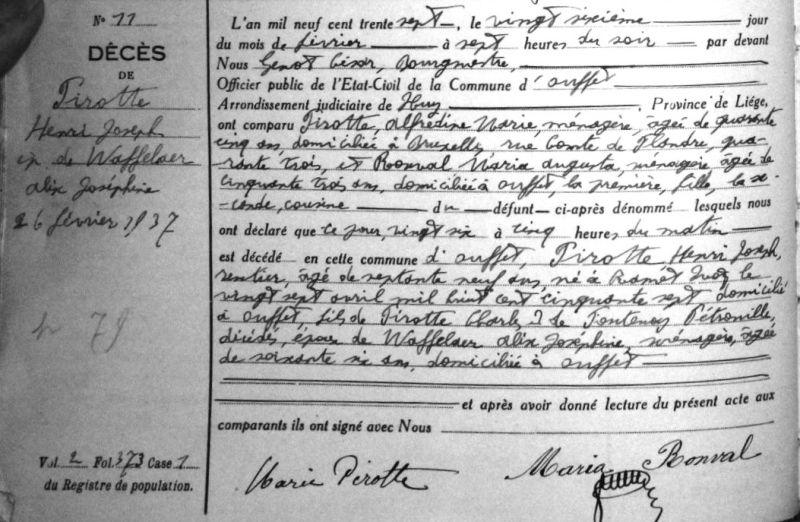 N° 11
DÉCÈS
DE
Pirotte
Henri Joseph
ép de Waffelaer
Alix Joséphine
26 février 1937
h 79
Vol. 2 Fol. 373 Case 1
du Registre de population.
L'an mil neuf cent trente sept, le vingt sixième jour
du mois de février à sept heures du soir par devant
Nous Genot César, Bourgmestre,
Officier public de l'Etat-Civil de la Commune d'Ouffet
Arrondissement judiciaire de Huy, Province de Liége,
ont comparu Pirotte, Alfrédine Marie, ménagère, âgée de quarante
cinq ans, domiciliée à Bruxelles, rue Comte de Flandre, qua-
rante trois, et Bonval Maria Augusta, ménagère âgée de
cinquante trois ans, domiciliée à Ouffet, la première, fille, la se-
conde, cousine du défunt ci-après dénommé lesquels nous
ont déclaré que ce jour, vingt six à cinq heures du matin
est décédé en cette commune d'Ouffet, Pirotte Henri Joseph,
rentier, âgé de septante neuf ans, né à Ramet le
vingt sept avril mil huit cent cinquante sept domicilié
à Ouffet, fils de Pirotte Charles & de Fontenoy Pétronille,
décédés, époux de Waffelaer Alix Joséphine, ménagère, âgée
de soixante six ans, domiciliée à Ouffet
et après avoir donné lecture du présent acte aux
comparants ils ont signé avec Nous
Marie Pirotte
Maria Bonval